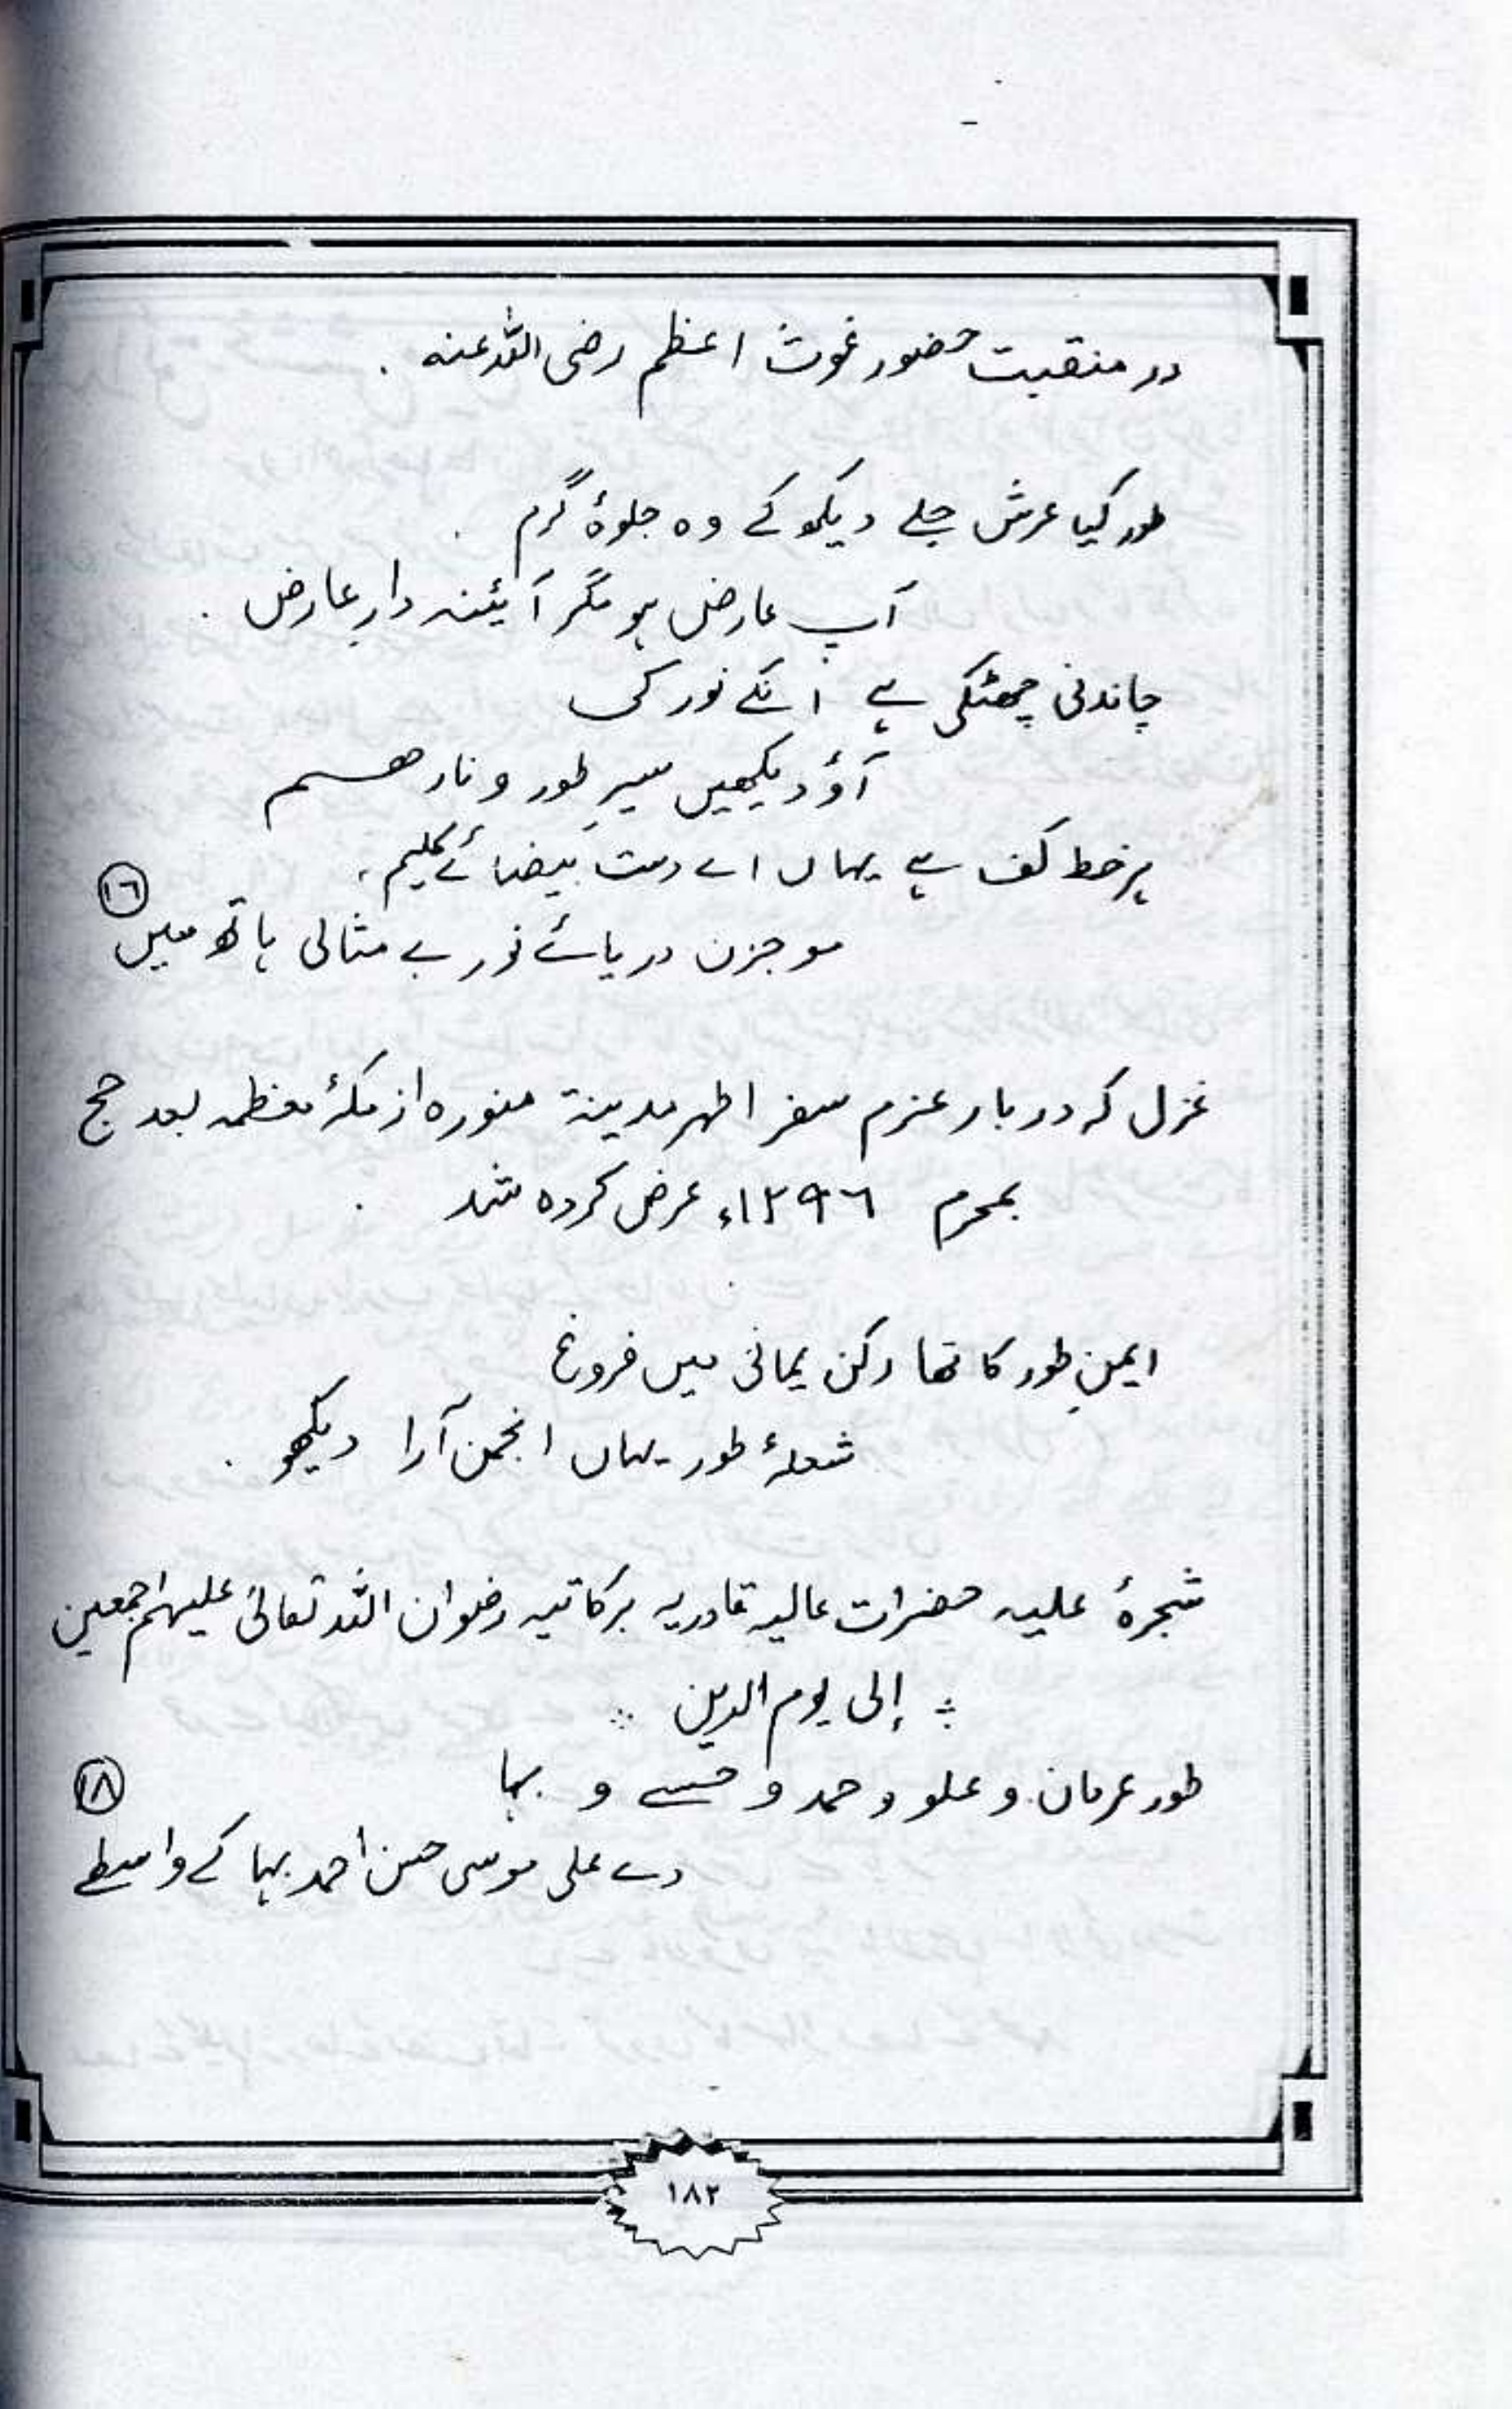 در منقبت حضور غوث اعظم رضی اللہ عنہ .
طور کیا عرش جلے دیکھ کے وہ جلوۂ گرم .
آپ عارض ہو مگر آیئنہ دارِ عارض .
چاندنی چھٹکی ہے اُنکے نور کی
آؤ دیکھیں سیرِ طور و نار ھم
ہر خط کف ہے یہاں اے دست بَیضائے کلیم ،
١٦
موجزن دریائے نور بے مثالی ہاتھ میں
غزل کہ در بار عزم سفر اطہر مدینۃ منورہ از مکۂ معظمہ بعد حج
بمحرم ١٢٩٦ء عرض کردہ شد .
ایمنِ طور کا تھا رکن یمانی میں فروغ
شعلۂ طور یہاں انجمن آرا دیکھو .
شجرۂ علیہ حضرات عالیہ قادریہ برکاتیہ رضوان اللہ تعالیٰ علیہم اجمعین
إلی یوم الدین
طور عرفان و علو و حمد و حسنے و بہا
١٨
دے علی موسی حسن احمد بہا کے واسطے
١٨٢